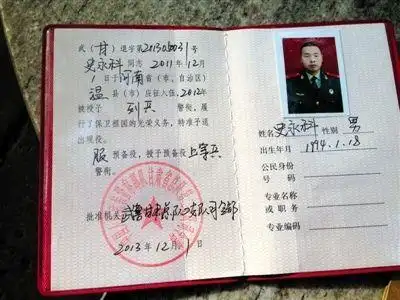 武（甘）退字第20130031号
史永科同志 2011年12月
1日于河南省（市、自治区）
温县（市）应征入伍，2012年
被授予列兵警衔，履
行了保卫祖国的光荣义务，转准予退
出现役。
服预备役，授予预备役上等兵
警衔。
批准机关
2013年12月1日
姓名史永科性别男
出生年月1994.1.18
公民身份
号码
专业名称
或职务
专业编码